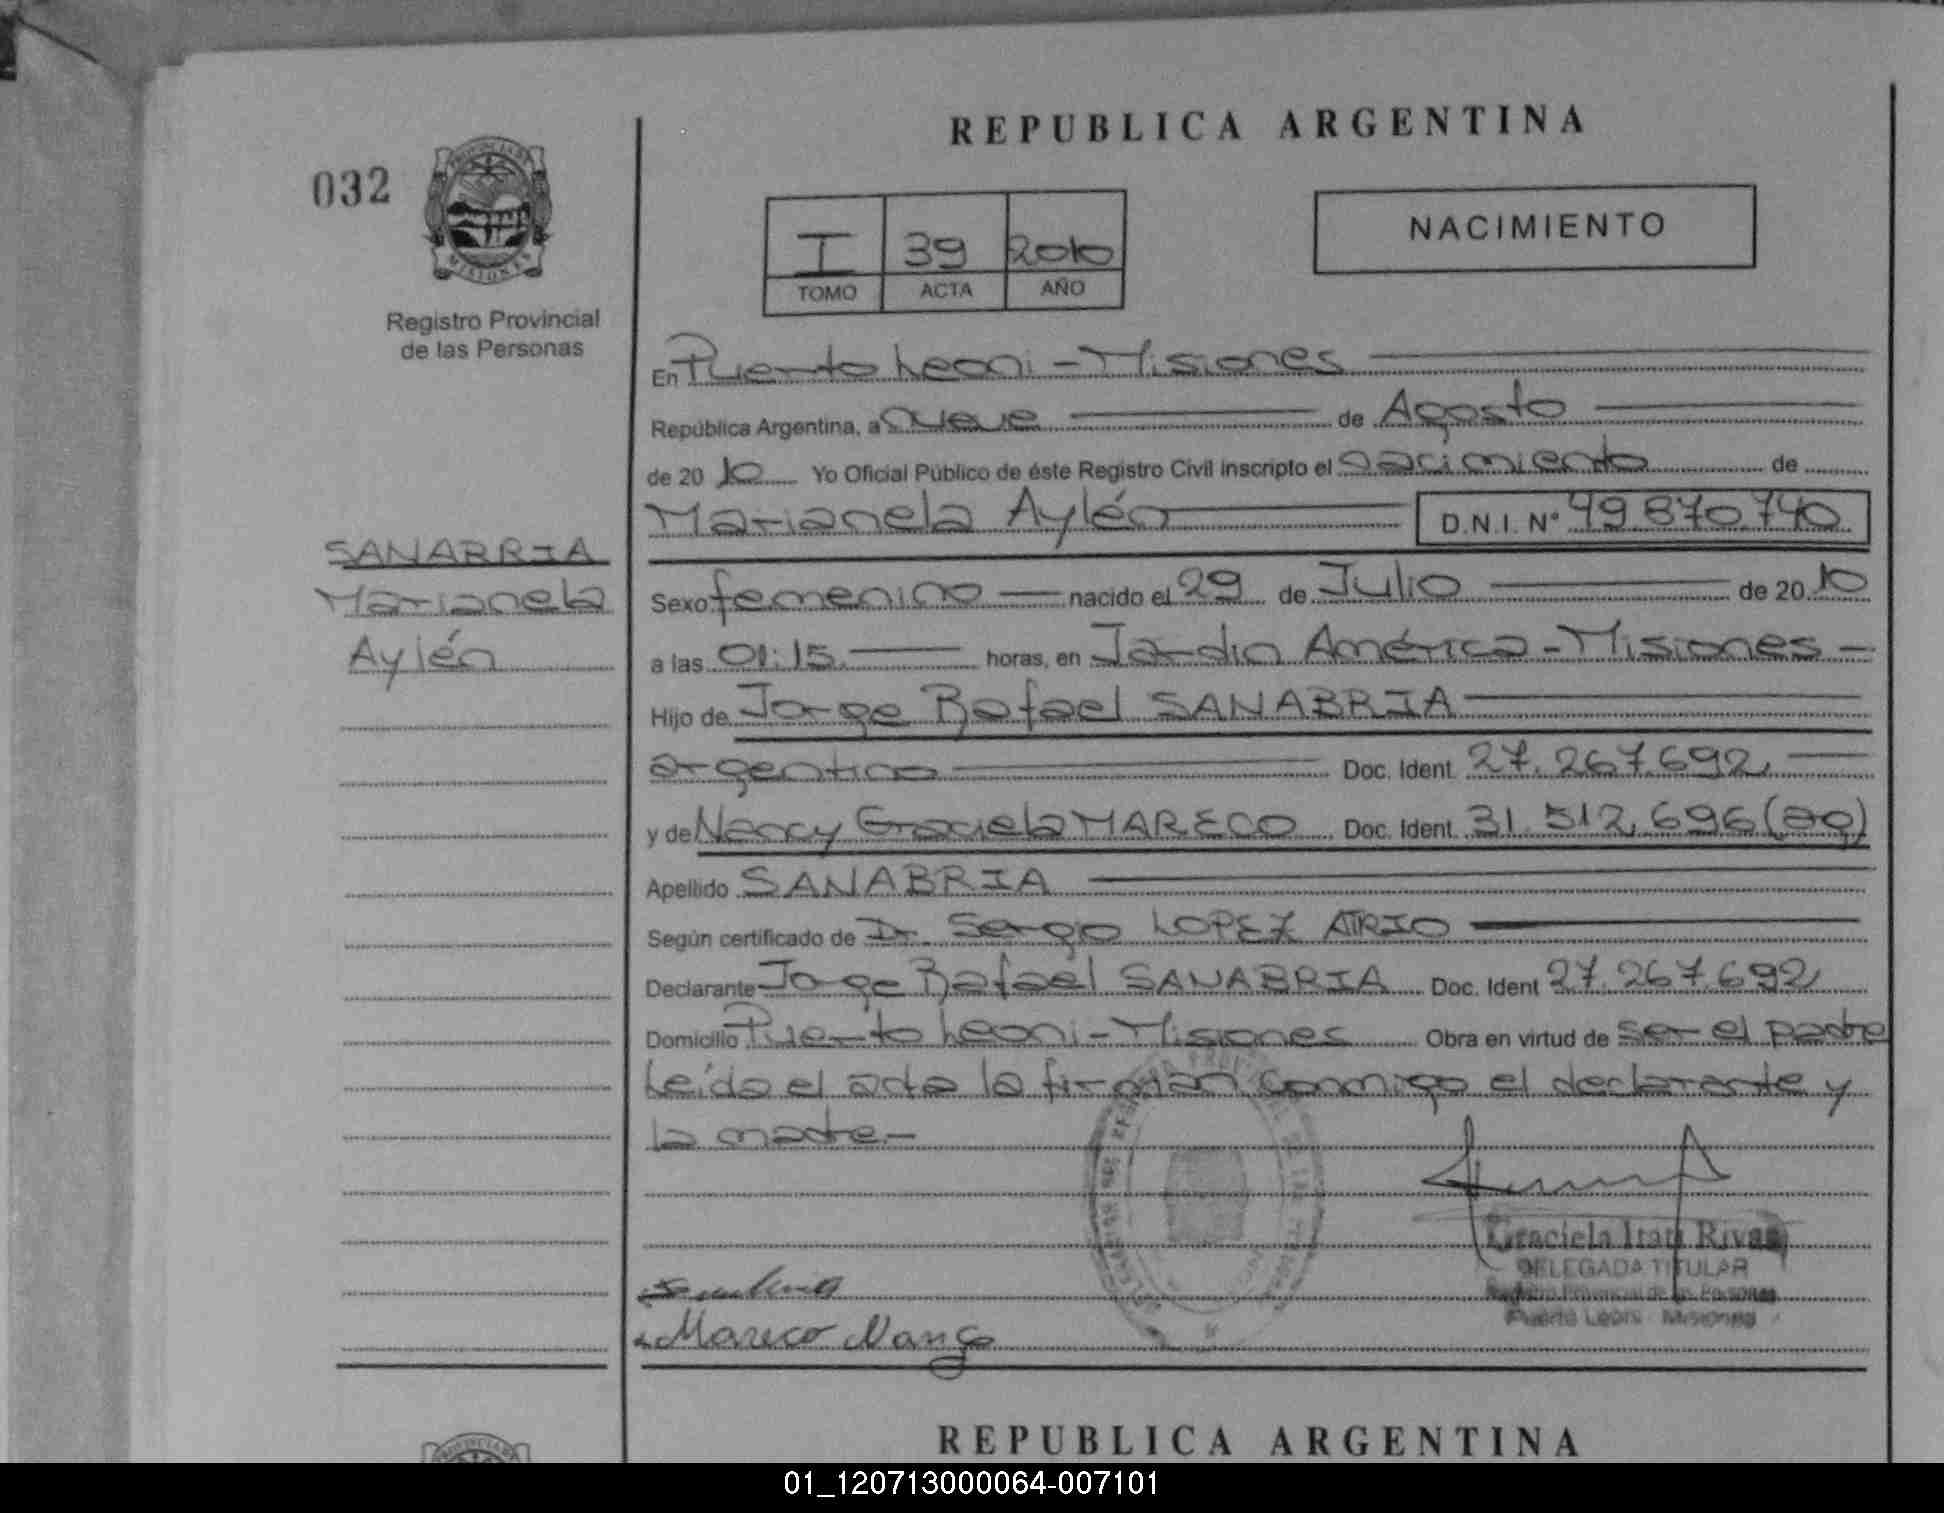 REPUBLICA ARGENTINA
032
PROVINCIA DE
MISIONES
Registro Provincial
de las Personas
I 39 2010
TOMO ACTA AÑO
NACIMIENTO
En Puerto Leoni - Misiones
República Argentina, a nueve de Agosto
de 20 10 Yo Oficial Público de éste Registro Civil inscripto el nacimiento de
Marianela Aylén D.N.I. N° 49.870.740
SANABRIA
Marianela
Aylén
Sexo femenino nacido el 29 de Julio de 20 10
a las 01:15 horas, en Jardín América - Misiones -
Hijo de Jorge Rafael SANABRIA
argentino Doc. Ident. 27.267.692
y de Nancy Graciela MARECO Doc. Ident. 31.512.696 (ag)
Apellido SANABRIA
Según certificado de Dr. Sergio LOPEZ ATRIO
Declarante Jorge Rafael SANABRIA Doc. Ident 27.267.692
Domicilio Puerto Leoni - Misiones Obra en virtud de ser el padre
Leída el acta la firman conmigo el declarante y
la madre.-
Graciela Itatí Rivas
DELEGADA TITULAR
Registro Provincial de las Personas
Puerto Leoni - Misiones
Mareco Nancy
REPUBLICA ARGENTINA
01_120713000064-007101